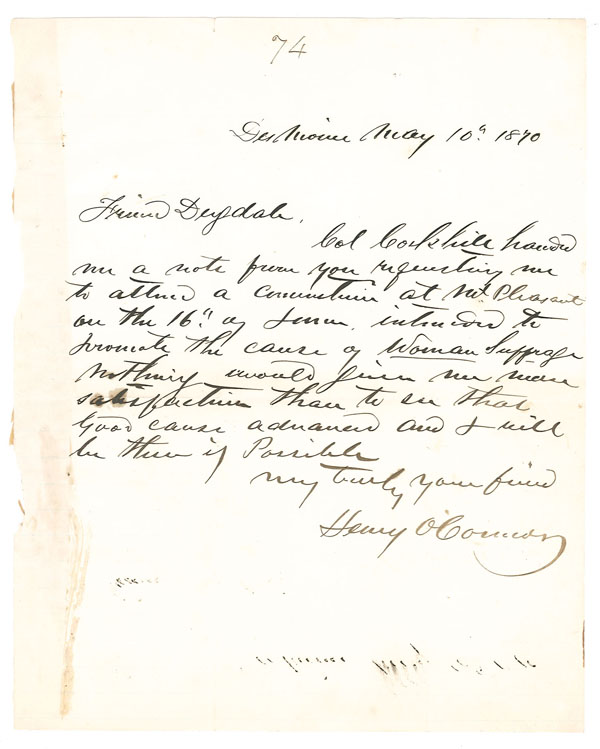 74
Des Moines May 10th 1870
Friend Dugdale,
Col Corkhill handed
me a note from you requesting me
to attend a convention at Mt. Pleasant
on the 16th of June, intended to
promote the cause of Woman Suffrage
Nothing would given me more
satisfaction than to see that
Good cause advanced and I will
be there if Possible
my truly your friend
Henry O'Connor